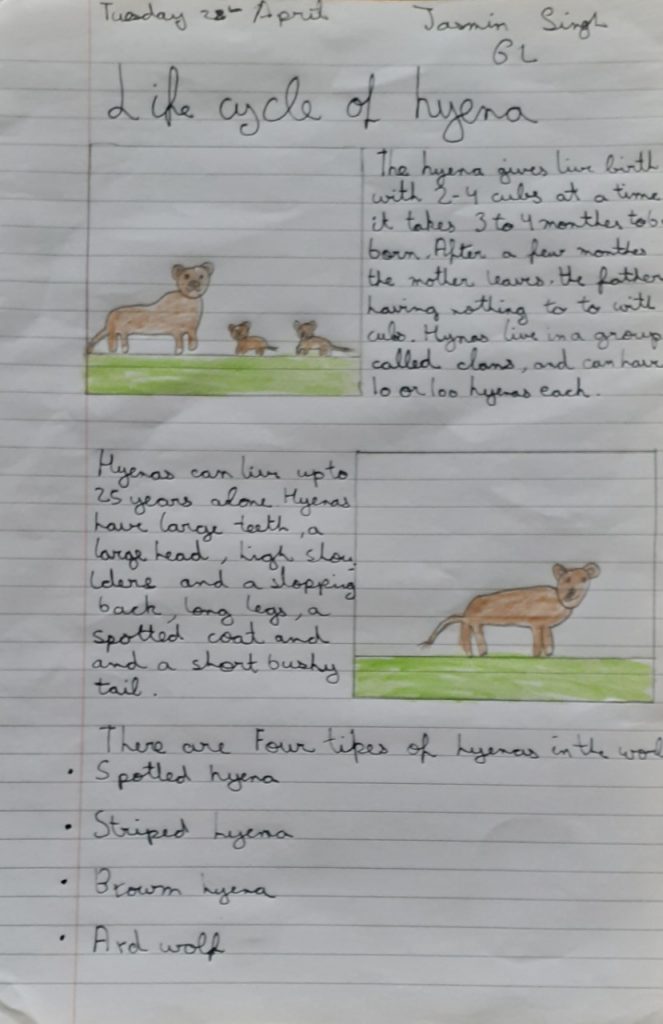 Tuesday 28th April
Jasmin Singh
6L
Life cycle of hyena
The hyena gives live birth
with 2-4 cubs at a time
it takes 3 to 4 monthes to b
born. After a few monthes
the mother leaves. the father
having nothing to to with
cubs. Hynas live in a group
called clans, and can have
10 or 100 hyenas each.
Hyenas can live up to
25 years alone Hyenas
have large teeth, a
large head, high shou
lders and a slopping
back, long legs, a
spotted coat and
and a short bushy
tail.
There are Four tipes of hyenas in the worl
• Spotled hyena
• Striped hyena
• Browm hyena
• Ard wolf